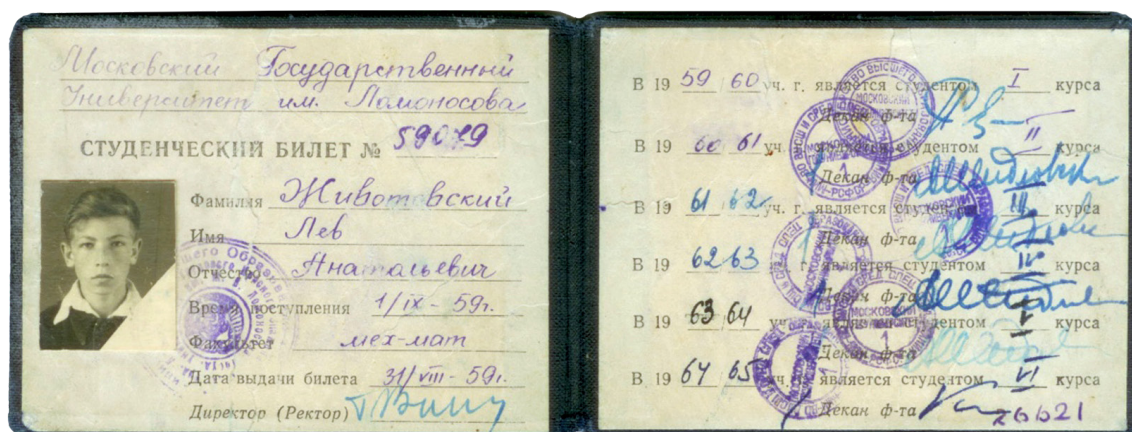 Московский Государственный
Университет им. Ломоносова
СТУДЕНЧЕСКИЙ БИЛЕТ № 59079
Фамилия Животовский
Имя Лев
Отчество Анатольевич
Время поступления 1/IX - 59г.
Факультет мех-мат
Дата выдачи билета 31/VIII - 59г.
Директор (Ректор)
В 19 59/60 уч. г. является студентом I курса
Декан ф-та
В 19 60/61 уч. г. является студентом II курса
Декан ф-та
В 19 61/62 уч. г. является студентом III курса
Декан ф-та
В 19 62/63 уч. г. является студентом IV курса
Декан ф-та
В 19 63/64 уч. г. является студентом V курса
Декан ф-та
В 19 64/65 уч. г. является студентом VI курса
Декан ф-та
26621